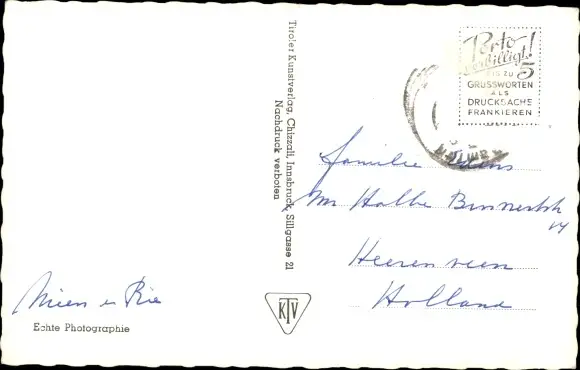 Tiroler Kunstverlag, Chizzali, Innsbruck, Sillgasse 21
Nachdruck verboten
Porto
verbilligt!
BIS ZU 5
GRUSSWORTEN
ALS
DRUCKSACHE
FRANKIEREN
Familie
Mr Halbe
Heerenveen
Holland
Mien en Rie
Echte Photographie
KTV